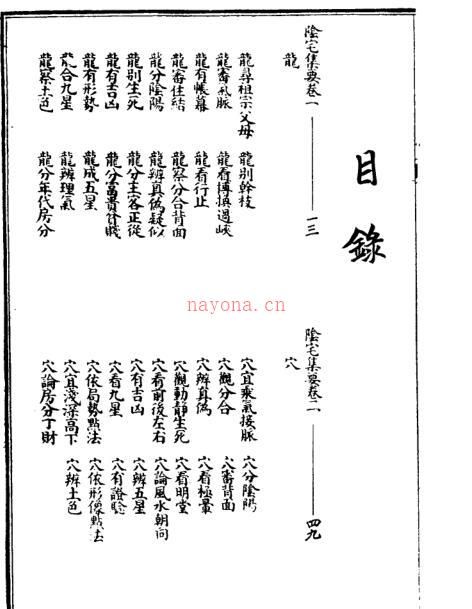 目錄
陰宅集要卷一 —— 一三
龍
龍尋祖宗父母 龍別幹枝
龍審氣脈 龍看摶換過峽
龍有帳幕 龍看行止
龍審住結 龍察分合背面
龍分陰陽 龍辨真偽疑似
龍別生死 龍分主客正從
龍有吉凶 龍分富貴貧賤
龍有形勢 龍成五星
龍合九星 龍辨理氣
龍察土色 龍分年代房分
陰宅集要卷二 —— 四九
穴
穴宜乘氣接脈 穴分陰陽
穴觀分合 穴審背面
穴辨真偽 穴看極暈
穴觀動靜生死 穴看明堂
穴看前後左右 穴論風水朝向
穴有吉凶 穴辨五星
穴看九星 穴有證驗
穴依局勢點法 穴依形像點法
穴宜淺深高下 穴辨土色
穴論房分丁財
nayona.cn